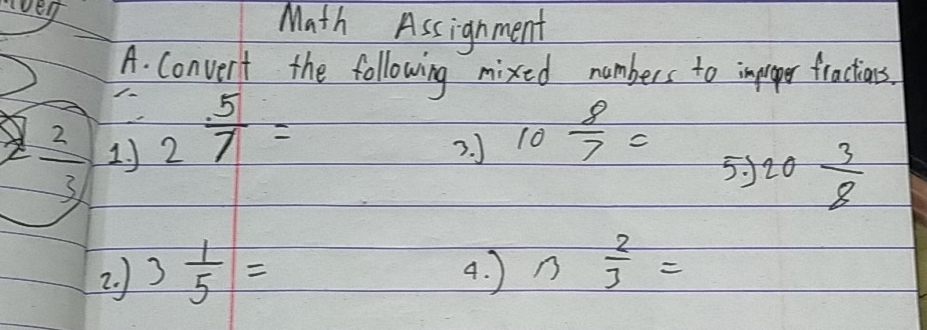 Math Assignment
A. Convert the following mixed numbers to improper fractions.
2 2/3
1.) 2 5/7 =
3.) 10 8/7 =
5.) 20 3/8
2.) 3 1/5 =
4.) 2/3 =